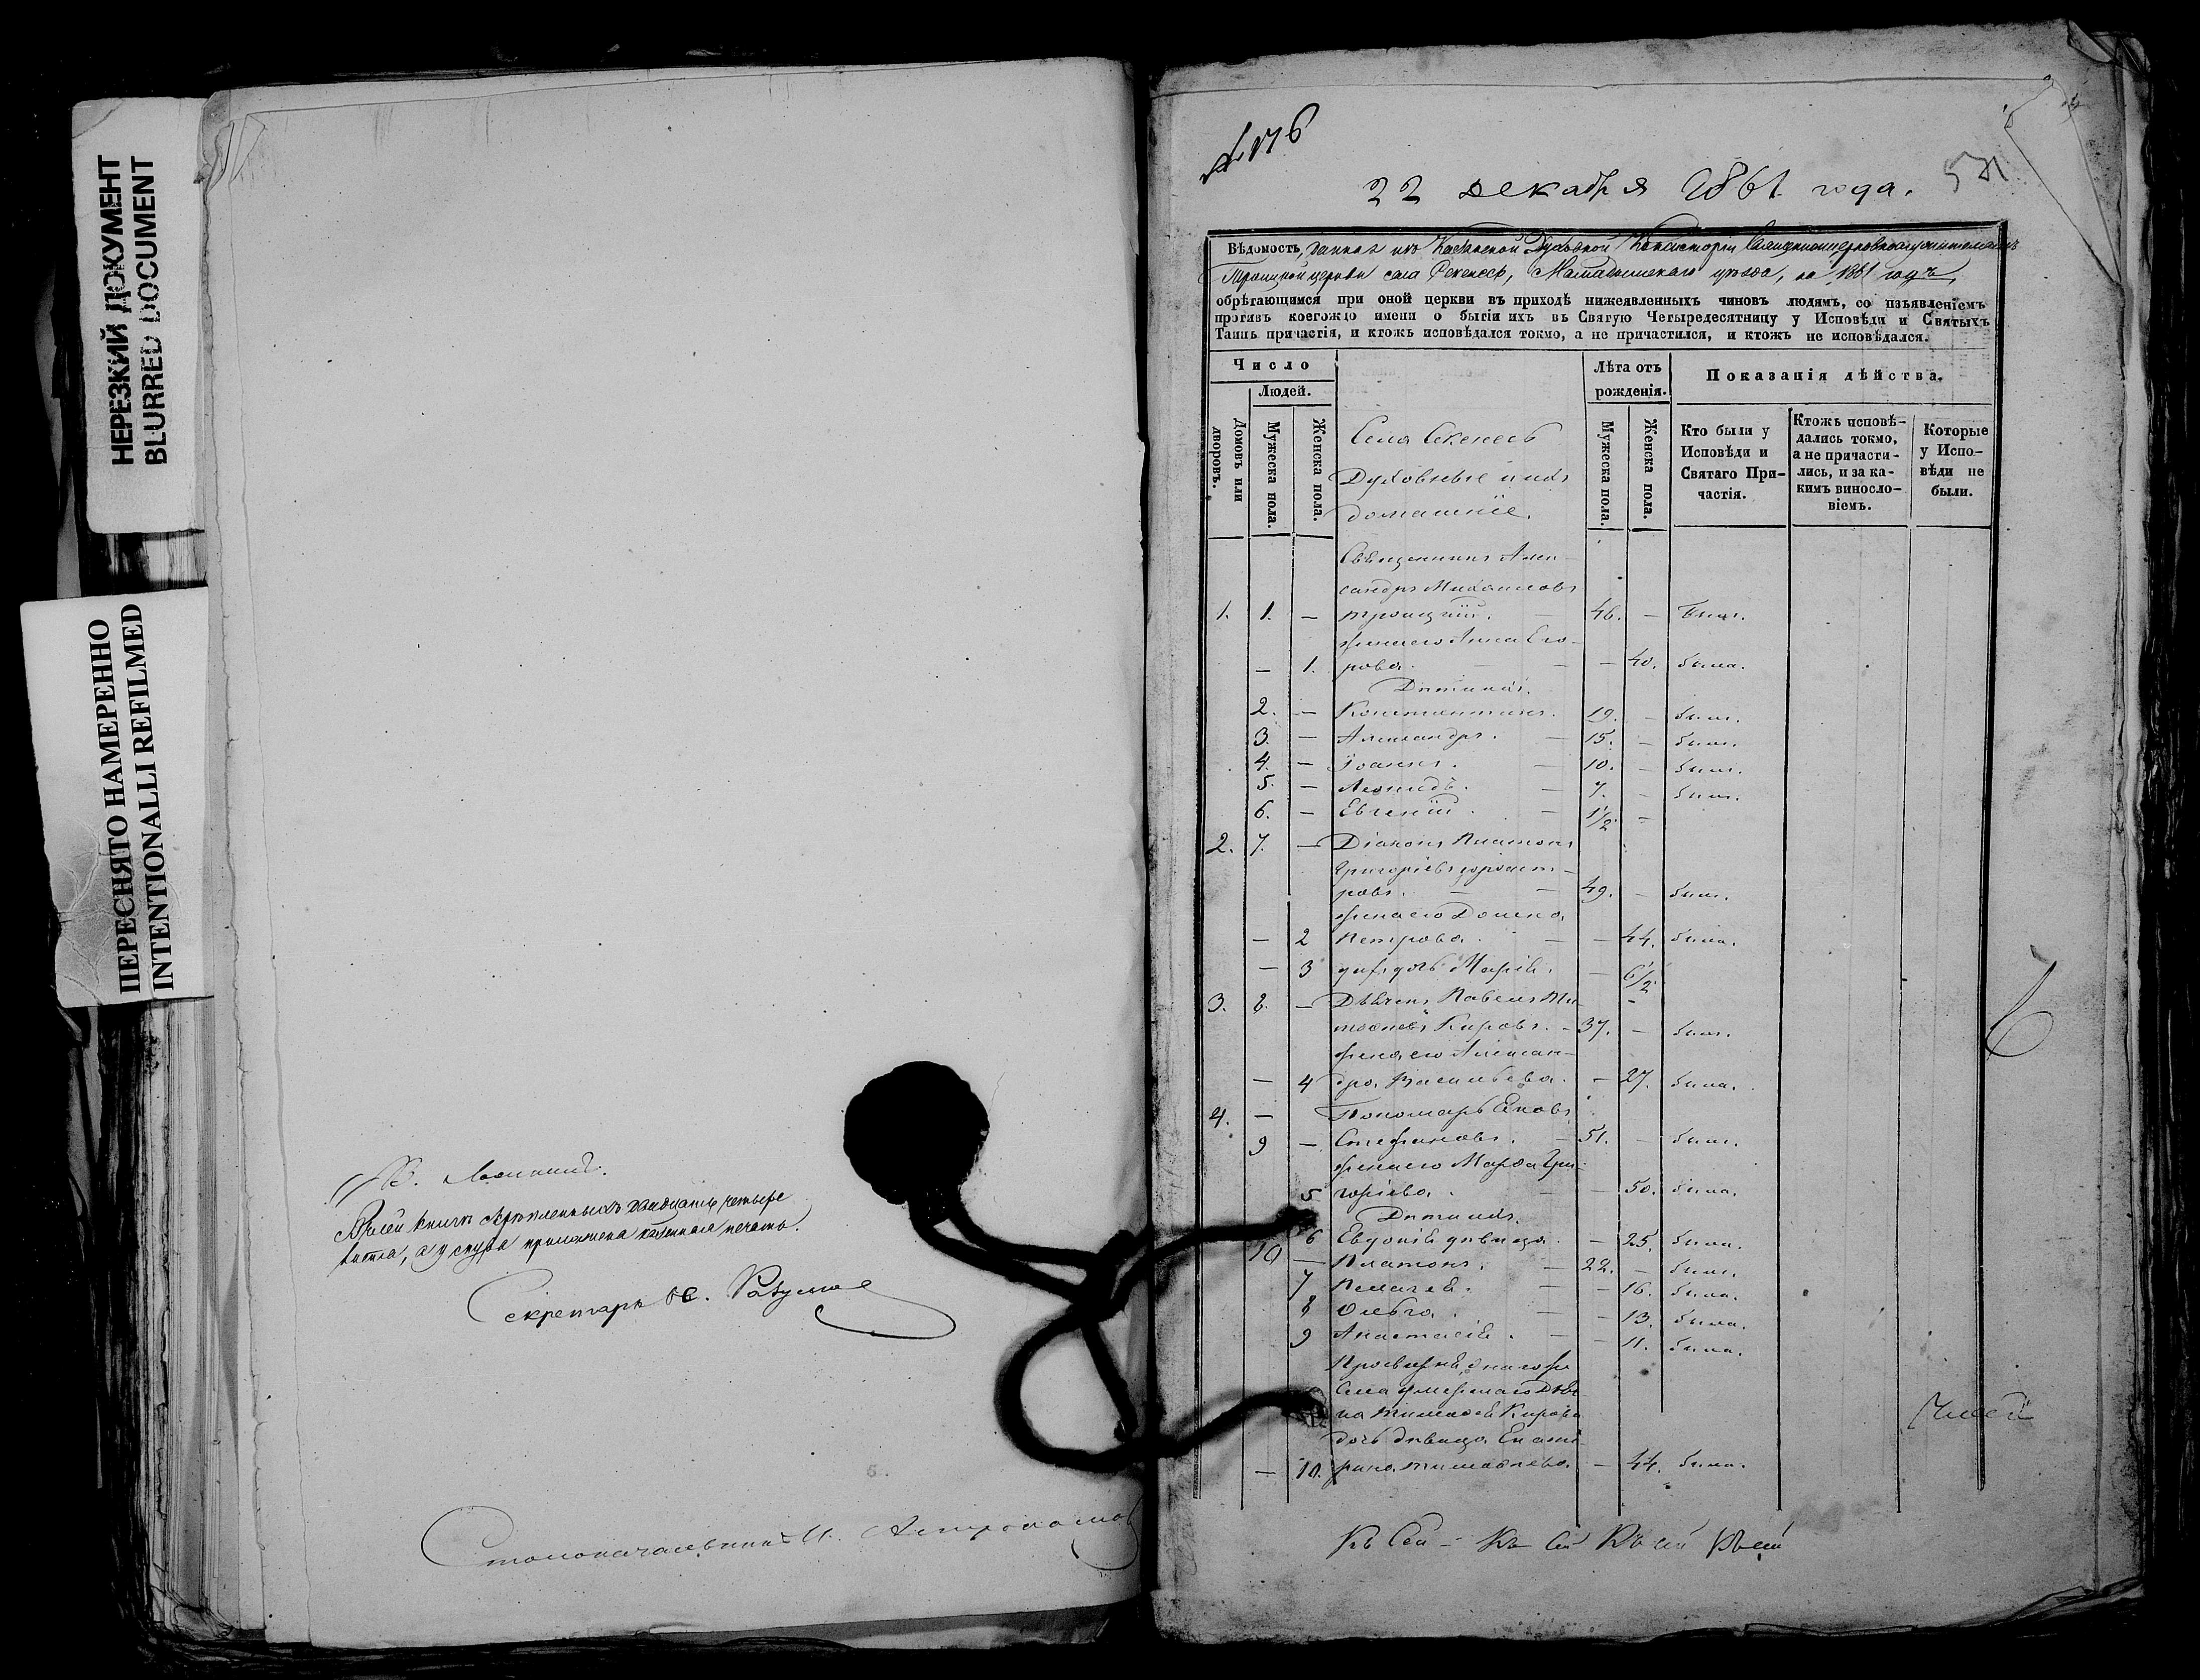 НЕРЕЗКИЙ ДОКУМЕНТ
BLURRED DOCUMENT
ПЕРЕСНЯТО НАМЕРЕННО
INTENTIONALLI REFILMED
Въ сей книгѣ скрѣпленныхъ двадцать четыре
листа, а у снура приложена казенная печать.
Секретарь
Столоначальникъ
№ 176
22 декабря 1861 года.
Вѣдомость, данная изъ Казанской Духовной Консисторіи Священноцерковнослужителямъ
Троицкой церкви села Секенесь, Мамадышскаго уѣзда, на 1861 годъ,
обрѣтающимся при оной церкви въ приходѣ нижеявленныхъ чиновъ людямъ, со изъявленіемъ
противъ коегождо имени о бытіи ихъ въ Святую Четыредесятницу у Исповѣди и Святыхъ
Таинъ причастія, и ктожъ исповѣдался токмо, а не причастился, и ктожъ не исповѣдался.
Число
Людей.
Домовъ или дворовъ.
Мужеска пола.
Женска пола.
Села Секенесь
Духовные и ихъ
домашніе.
Лѣта отъ
рожденія.
Мужеска пола.
Женска пола.
Показанія дѣйства.
Кто были у
Исповѣди и
Святаго При-
частія.
Ктожъ исповѣ-
дались токмо,
а не причасти-
лись, и за ка-
кимъ винсло-
віемъ.
Которые
у Испо-
вѣди не
были.
Священникъ Алек-
сандръ Михаиловъ
1. 1. — Троицкій. — 46. — былъ.
жена его Анна Его-
— 1. рова. — — 40. была.
Дѣти ихъ.
2. — Константинъ. 19. — былъ.
3. — Александръ. — 15. — былъ.
4. — Іоаннъ. — 10. — былъ.
5. — Леонидъ. — 7. — былъ.
6. — Евгеній. — 1½ —
2. 7. — Діаконъ Платонъ
Григорьевъ
ровъ. — 49. — былъ.
жена его Домна
— 2 Петрова. — — 44. была.
— 3 дочь Марія. — 6½
3. 8. — Дьячекъ Павелъ Ти-
мофѣевъ Кировъ. — 37. — былъ.
жена его Алексан-
— 4 дра Васильева. — 27. была.
4. — Пономарь Яковъ
9 — Стефановъ. — 51. — былъ.
жена его Марѳа Гри-
5 горіева. — — 50. была.
Дѣти ихъ.
6 Евдокія дѣвица. — 25. была.
10 — Платонъ. — 22. — былъ.
7 Пелагея. — — 16. была.
8 Ольга. — — 13. была.
9 Анастасія. — — 11. была.
Просвирня, онаго же
села умершаго Дья-
ка Тимофея Кирова
дочь дѣвица Екате-
— 10. рина Тимофѣева. — 44. была.
Къ сей — Къ сей Къ сей Къ сей